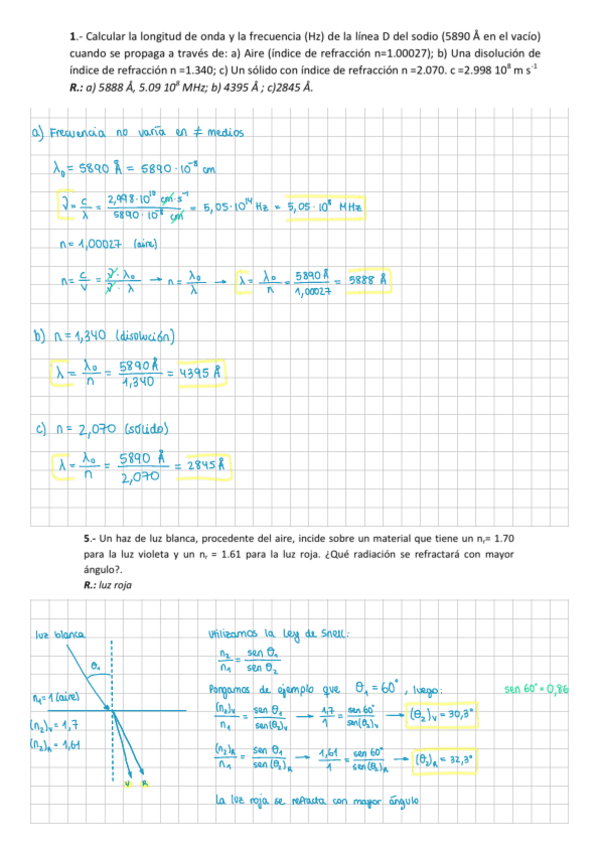 1.- Calcular la longitud de onda y la frecuencia (Hz) de la línea D del sodio (5890 Å en el vacío)
cuando se propaga a través de: a) Aire (índice de refracción n=1.00027); b) Una disolución de
índice de refracción n =1.340; c) Un sólido con índice de refracción n =2.070. c =2.998 10⁸ m s⁻¹
R.: a) 5888 Å, 5.09 10⁸ MHz; b) 4395 Å ; c)2845 Å.
a) Frecuencia no varía en ≠ medios
λ₀ = 5890 Å = 5890·10⁻⁸ cm
ν = c/λ = 2,998·10¹⁰ cm·s⁻¹ / 5890·10⁻⁸ cm = 5,05·10¹⁴ Hz = 5,05·10⁸ MHz
n = 1,00027 (aire)
n = c/v = ν·λ₀/ν·λ → n = λ₀/λ → λ = λ₀/n = 5890 Å/1,00027 = 5888 Å
b) n = 1,340 (disolución)
λ = λ₀/n = 5890 Å/1,340 = 4395 Å
c) n = 2,070 (sólido)
λ = λ₀/n = 5890 Å/2,070 = 2845 Å
5.- Un haz de luz blanca, procedente del aire, incide sobre un material que tiene un nᵣ= 1.70
para la luz violeta y un nᵣ = 1.61 para la luz roja. ¿Qué radiación se refractará con mayor
ángulo?.
R.: luz roja
luz blanca
θ₁
n₁=1 (aire)
(n₂)ᵥ=1,7
(n₂)R=1,61
V R
Utilizamos la Ley de Snell:
n₂/n₁ = sen θ₁/sen θ₂
Pongamos de ejemplo que θ₁ = 60°, luego: sen 60° = 0,86
(n₂)ᵥ/n₁ = sen θ₁/sen(θ₂)ᵥ → 1,7/1 = sen 60°/sen(θ₂)ᵥ → (θ₂)ᵥ = 30,3°
(n₂)R/n₁ = sen θ₁/sen(θ₂)R → 1,61/1 = sen 60°/sen(θ₂)R → (θ₂)R = 32,3°
La luz roja se refracta con mayor ángulo